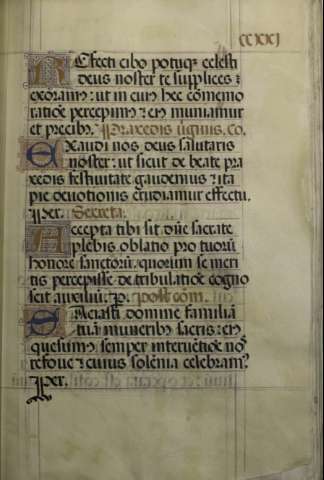 CCXXJ
REfecti cibo potuq; celesti
deus noster te supplices
exoram9: ut in cui9 hec cōmemo
ratiōe percepim9 : ei9 muniamur
et precib9. Praxedis uiginis. Co.
EXaudi nos deus salutaris
noster: ut sicut de beate pra
xedis festiuitate gaudemus : ita
pie deuotionis erudiamur effectu.
Per. Secreta.
ACcepta tibi sit dn̄e sacrate
plebis oblatio pro tuorū
honore sanctorū: quorum se meri
tis percepisse de tribulatiōe cogno
scit auxiliū. P. Post cōm.
SAciasti domine familiā
tuā muneribus sacris: ei9
quesum9 semper interuētiōe nos
refoue : cuius solēnia celebram9
Per.